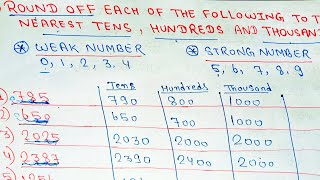 ROUND OFF EACH OF THE FOLLOWING TO T
NEAREST TENS, HUNDREDS AND THOUSAN
* WEAK NUMBER * STRONG NUMBER
0, 1, 2, 3. 4 5, 6, 7, 8. 9
Tens Hundreds Thousand
1) 785 790 800 1000
2) 650 650 700 1000
3) 2025 2030 2000 2000
4) 2387 2390 2400 2000